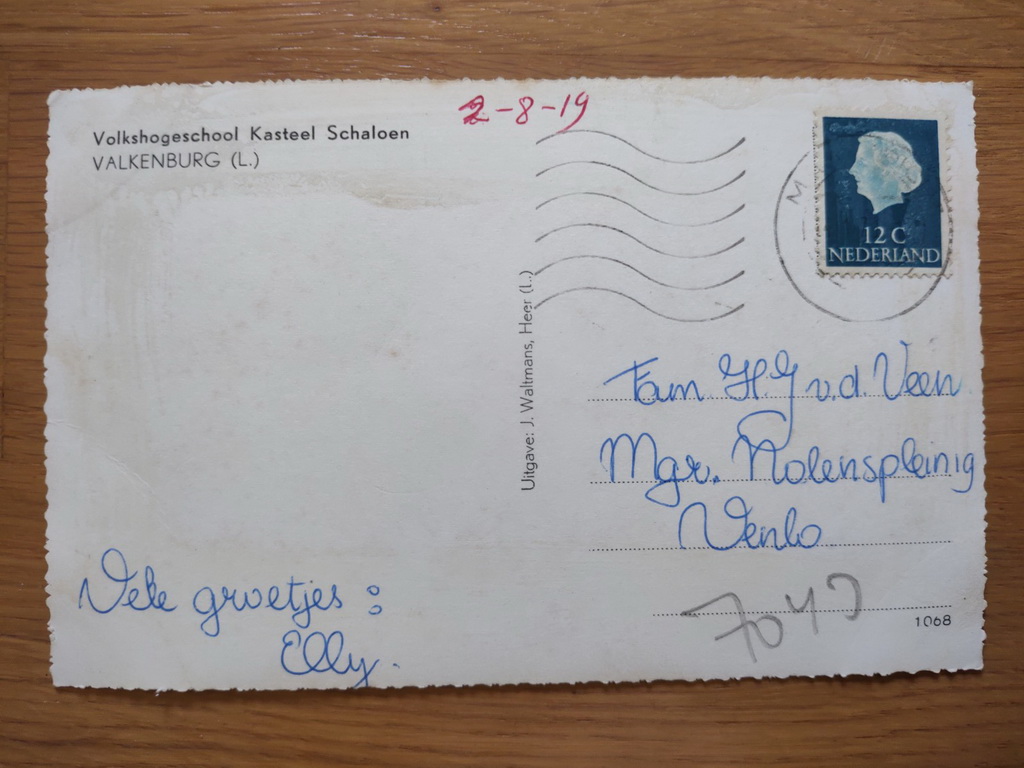 Volkshogeschool Kasteel Schaloen
VALKENBURG (L.)
2-8-19
12 C
NEDERLAND
Uitgave: J. Waltmans, Heer (L.)
Fam H.G v.d. Veen
Mgr. Nolensplein 19
Venlo
Vele groetjes :
Elly.
1068